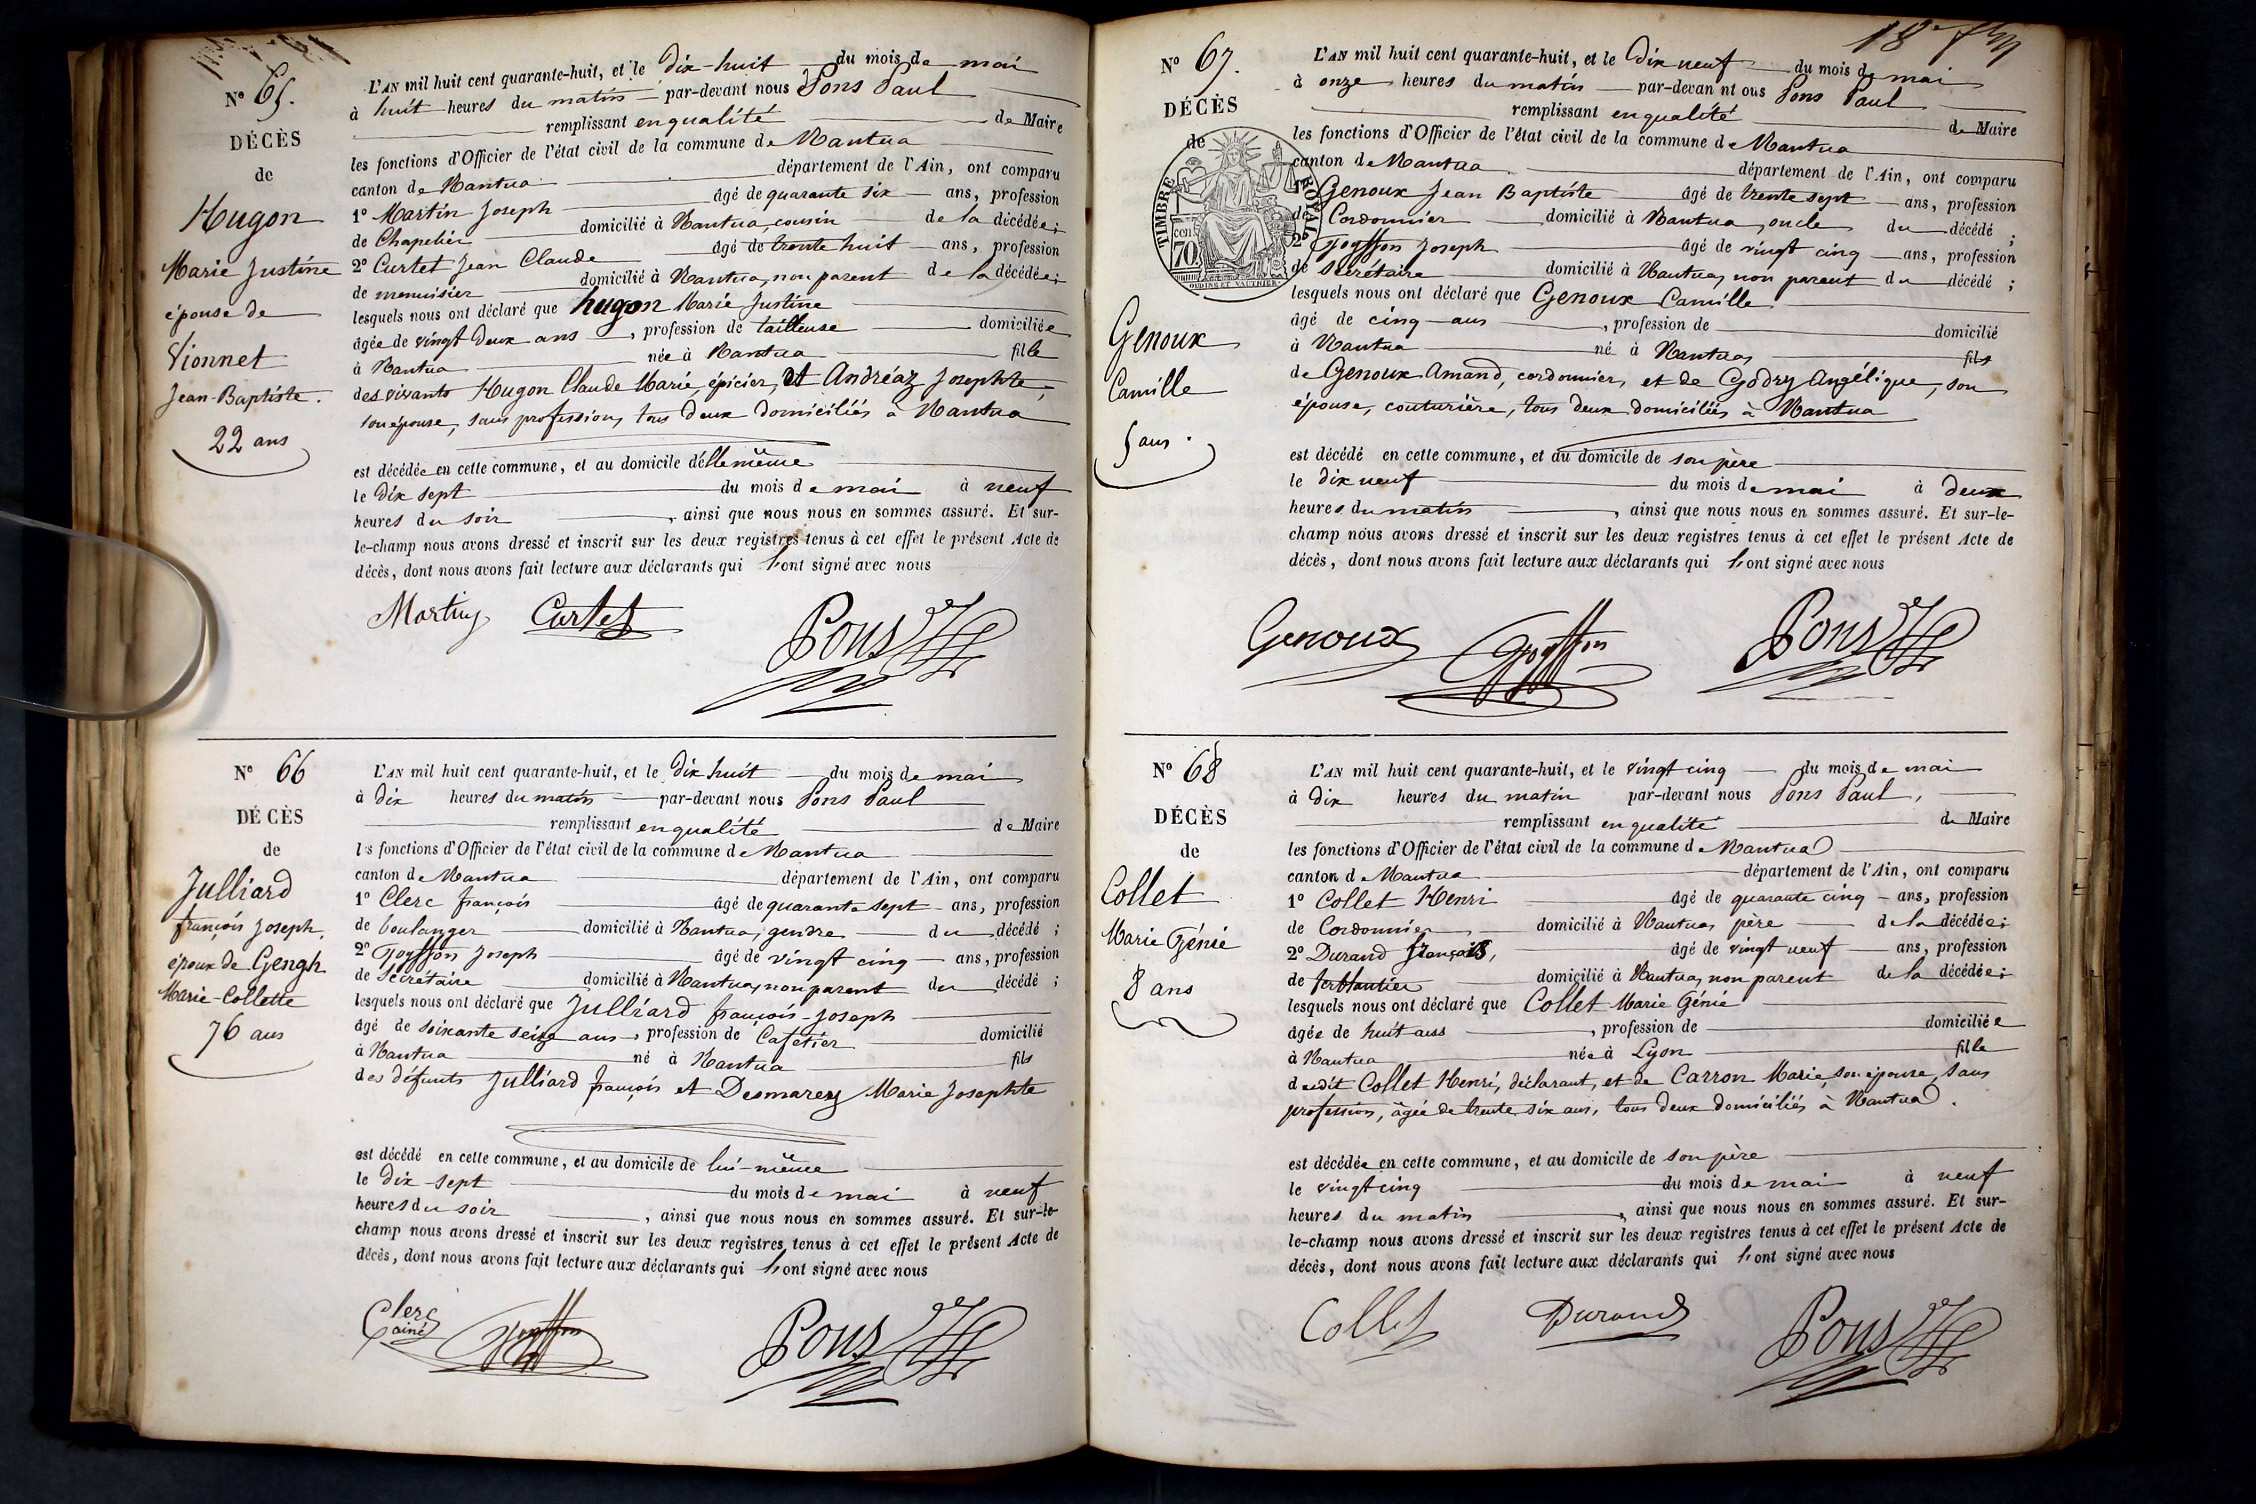 N° 65.
DÉCÈS
de
Hugon
Marie Justine
épouse de
Vionnet
Jean-Baptiste.
22 ans
L'AN mil huit cent quarante-huit, et le dix-huit du mois de mai
à huit heures du matin par-devant nous Pons Paul
remplissant en qualité de Maire
les fonctions d'Officier de l'état civil de la commune de Nantua
canton de Nantua département de l'Ain, ont comparu
1° Martin Joseph âgé de quarante six ans, profession
de Chapelier domicilié à Nantua, cousin de la décédée;
2° Curtet Jean Claude âgé de trente huit ans, profession
de menuisier domicilié à Nantua, non parent de la décédée;
lesquels nous ont déclaré que hugon Marie Justine
âgée de vingt deux ans, profession de tailleuse domiciliée
à Nantua née à Nantua fille
des vivants Hugon Claude Marie, épicier, et Andréaz Josephte,
son épouse, sans profession, tous deux domiciliés à Nantua
est décédée en cette commune, et au domicile d'elle même
le dix sept du mois de mai à neuf
heures du soir, ainsi que nous nous en sommes assuré. Et sur-
le-champ nous avons dressé et inscrit sur les deux registres tenus à cet effet le présent Acte de
décès, dont nous avons fait lecture aux déclarants qui l'ont signé avec nous
Martin Curtet Pons
N° 66
DÉCÈS
de
Julliard
françois Joseph,
époux de Gengh
Marie-Collette
76 ans
L'AN mil huit cent quarante-huit, et le dix huit du mois de mai
à dix heures du matin par-devant nous Pons Paul
remplissant en qualité de Maire
les fonctions d'Officier de l'état civil de la commune de Nantua
canton de Nantua département de l'Ain, ont comparu
1° Clerc françois âgé de quarante sept ans, profession
de boulanger domicilié à Nantua, gendre du décédé;
2° Goyffon Joseph âgé de vingt cinq ans, profession
de secrétaire domicilié à Nantua, non parent du décédé;
lesquels nous ont déclaré que Julliard françois-Joseph
âgé de soixante seize ans, profession de Cafetier domicilié
à Nantua né à Nantua fils
des défunts Julliard françois et Desmarez Marie Josephte
est décédé en cette commune, et au domicile de lui-même
le dix-sept du mois de mai à neuf
heures du soir, ainsi que nous nous en sommes assuré. Et sur-le-
champ nous avons dressé et inscrit sur les deux registres tenus à cet effet le présent Acte de
décès, dont nous avons fait lecture aux déclarants qui l'ont signé avec nous
Clerc
ainé Goyffon Pons
18e
N° 67.
DÉCÈS
de
TIMBRE ROYAL
70 cen
OUDINE ET VAUTHIER
Genoux
Camille
5 ans.
L'AN mil huit cent quarante-huit, et le dix neuf du mois de mai
à onze heures du matin par-devan nt ous Pons Paul
remplissant en qualité de Maire
les fonctions d'Officier de l'état civil de la commune de Nantua
canton de Nantua département de l'Ain, ont comparu
1° Genoux Jean Baptiste âgé de trente sept ans, profession
de Cordonnier domicilié à Nantua, oncle du décédé;
2° Goyffon Joseph âgé de vingt cinq ans, profession
de Secrétaire domicilié à Nantua, non parent du décédé;
lesquels nous ont déclaré que Genoux Camille
âgé de cinq ans, profession de domicilié
à Nantua né à Nantua, fils
de Genoux Amand, cordonnier, et de Godry Angélique, son
épouse, couturière, tous deux domiciliés à Nantua
est décédé en cette commune, et au domicile de son père
le dix neuf du mois de mai à deux
heures du matin, ainsi que nous nous en sommes assuré. Et sur-le-
champ nous avons dressé et inscrit sur les deux registres tenus à cet effet le présent Acte de
décès, dont nous avons fait lecture aux déclarants qui l'ont signé avec nous
Genoux Goyffon Pons
N° 68
DÉCÈS
de
Collet
Marie Génie
8 ans
L'AN mil huit cent quarante-huit, et le vingt cinq du mois de mai
à dix heures du matin par-devant nous Pons Paul,
remplissant en qualité de Maire
les fonctions d'Officier de l'état civil de la commune de Nantua
canton de Nantua département de l'Ain, ont comparu
1° Collet Henri âgé de quarante cinq ans, profession
de Cordonnier domicilié à Nantua, père de la décédée;
2° Durand françois, âgé de vingt neuf ans, profession
de ferblantier domicilié à Nantua, non parent de la décédée;
lesquels nous ont déclaré que Collet Marie Génie
âgée de huit ans, profession de domiciliée
à Nantua née à Lyon fille
dudit Collet Henri, déclarant, et de Carron Marie, son épouse, sans
profession, âgée de trente six ans, tous deux domiciliés à Nantua.
est décédée en cette commune, et au domicile de son père
le vingt cinq du mois de mai à neuf
heures du matin, ainsi que nous nous en sommes assuré. Et sur-
le-champ nous avons dressé et inscrit sur les deux registres tenus à cet effet le présent Acte de
décès, dont nous avons fait lecture aux déclarants qui l'ont signé avec nous
Collet Durand Pons